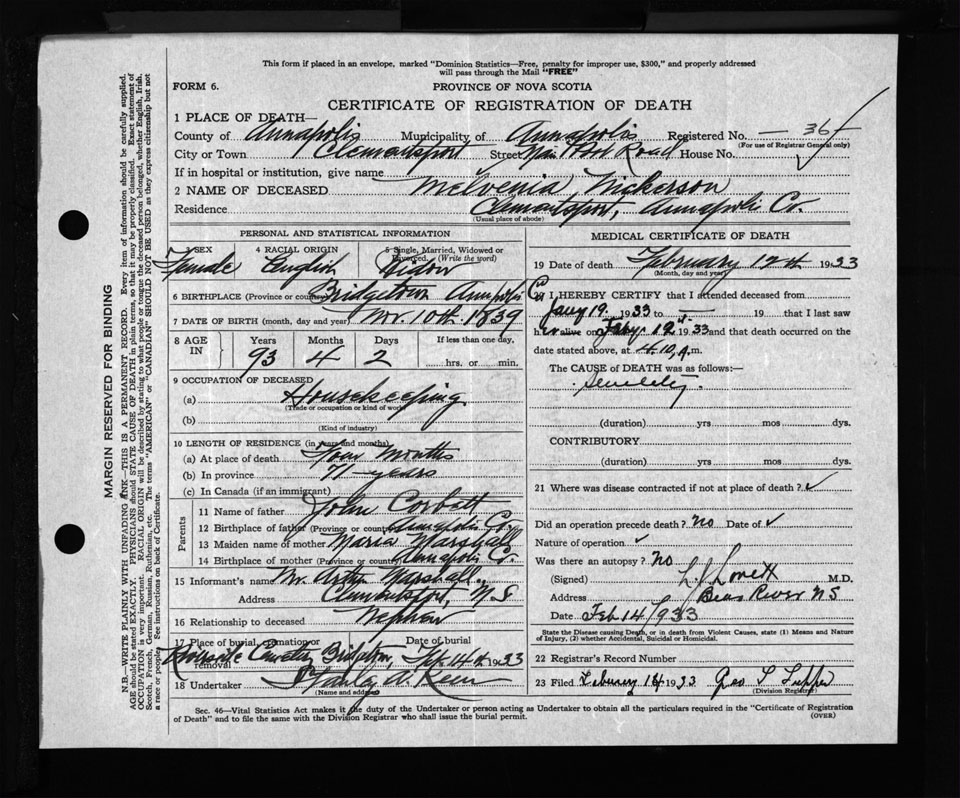 This form if placed in an envelope, marked "Dominion Statistics—Free, penalty for improper use, $300," and properly addressed
will pass through the Mail "FREE"
FORM 6.
PROVINCE OF NOVA SCOTIA
CERTIFICATE OF REGISTRATION OF DEATH
1 PLACE OF DEATH—
County of Annapolis Municipality of Annapolis Registered No. 36
(For use of Registrar General only)
City or Town Clementsport Street Road House No.
If in hospital or institution, give name
2 NAME OF DECEASED Melvenia Nickerson
Residence Clementsport, Annapolis Co.
(Usual place of abode)
PERSONAL AND STATISTICAL INFORMATION
3 SEX 4 RACIAL ORIGIN 5 Single, Married, Widowed or Divorced. (Write the word)
Female English Widow
6 BIRTHPLACE (Province or country) Bridgetown Annapolis
7 DATE OF BIRTH (month, day and year) Nov. 10th 1839
8 AGE IN Years Months Days If less than one day,
93 4 2 hrs. or min.
9 OCCUPATION OF DECEASED
(a) Housekeeping
(Trade or occupation or kind of work)
(b)
(Kind of industry)
10 LENGTH OF RESIDENCE (in years and months)
(a) At place of death Four Months
(b) In province 71 years
(c) In Canada (if an immigrant)
Parents
11 Name of father John Corbett
12 Birthplace of father (Province or country) Annapolis Co.
13 Maiden name of mother Maria Marshall
14 Birthplace of mother (Province or country) Annapolis Co.
15 Informant's name Mr. Arthur Marshall
Address Clementsport, N S
16 Relationship to deceased Nephew
17 Place of burial, cremation or removal Date of burial
Riverside Cemetery Bridgetown Feb. 14th 1933
18 Undertaker Stanley A.
(Name and address)
MEDICAL CERTIFICATE OF DEATH
19 Date of death February 12th 1933
(Month, day and year)
20 I HEREBY CERTIFY that I attended deceased from
Jany 19 1933 to — 19 that I last saw
her alive on Feby. 12 1933 and that death occurred on the
date stated above, at 4.10 A.m.
The CAUSE of DEATH was as follows:—
Senility
(duration) yrs mos dys.
CONTRIBUTORY
(duration) yrs mos dys.
21 Where was disease contracted if not at place of death? ✓
Did an operation precede death? No Date of ✓
Nature of operation ✓
Was there an autopsy? No
(Signed) L J Lovett M.D.
Address Bear River N S
Date Feb 14/933
State the Disease causing Death, or in death from Violent Causes, state (1) Means and Nature
of Injury, (2) whether Accidental, Suicidal or Homicidal.
22 Registrar's Record Number
23 Filed February 14 1933 Geo L
(Division Registrar)
Sec. 46—Vital Statistics Act makes it the duty of the Undertaker or person acting as Undertaker to obtain all the particulars required in the "Certificate of Registration
of Death" and to file the same with the Division Registrar who shall issue the burial permit.
(OVER)
MARGIN RESERVED FOR BINDING
N.B.—WRITE PLAINLY WITH UNFADING INK—THIS IS A PERMANENT RECORD. Every item of information should be carefully supplied.
AGE should be stated EXACTLY. PHYSICIANS should STATE CAUSE OF DEATH in plain terms, so that it may be properly classified. Exact statement of
OCCUPATION is very important. RACIAL ORIGIN will be described by stating to what people or tongue the deceased person belonged, whether English, Irish,
Scotch, French, German, Russian, Ruthenian, etc. The terms "AMERICAN" or "CANADIAN" SHOULD NOT BE USED as they express citizenship but not
a race or people. See instructions on back of Certificate.